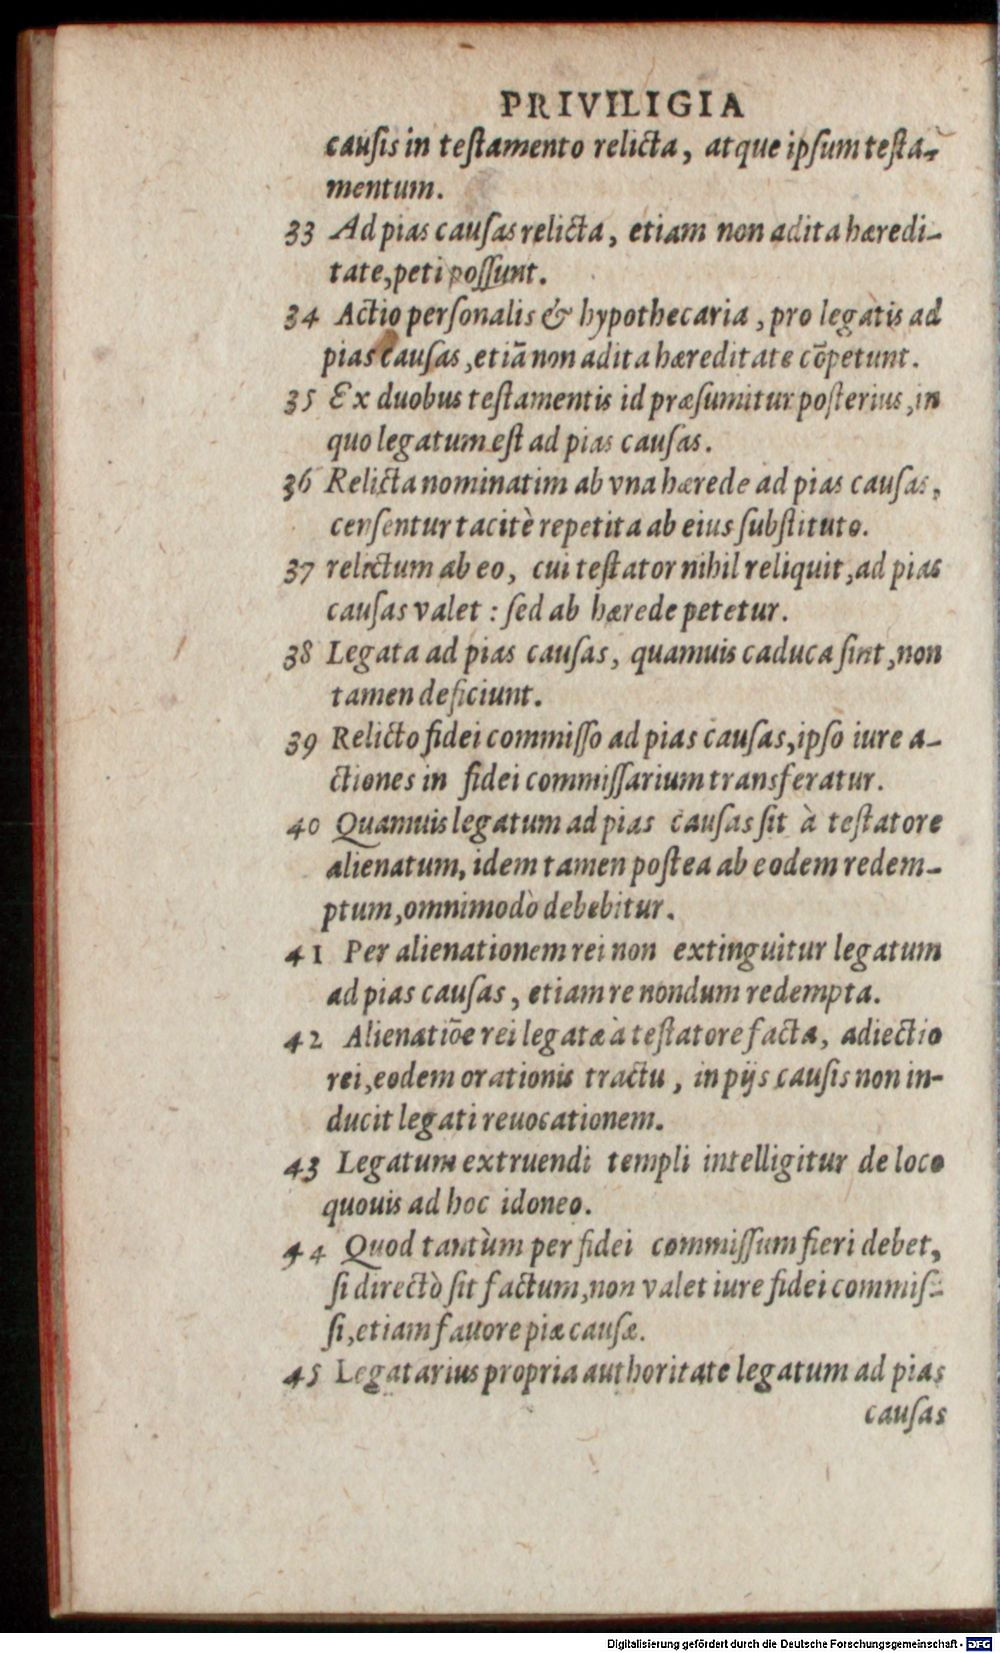 PRIVILIGIA
cauſis in teſtamento relicta, atque ipſum teſta-
mentum.
33 Ad pias cauſas relicta, etiam non adita hæredi-
tate, peti poſſunt.
34 Actio perſonalis & hypothecaria, pro legatis ad
pias cauſas, etiā non adita hæreditate cōpetunt.
35 Ex duobus teſtamentis id præſumitur poſterius, in
quo legatum eſt ad pias cauſas.
36 Relicta nominatim ab vna hærede ad pias cauſas,
cenſentur tacitè repetita ab eius ſubſtituto.
37 relictum ab eo, cui teſtator nihil reliquit, ad pias
cauſas valet : ſed ab hærede petetur.
38 Legata ad pias cauſas, quamuis caduca ſint, non
tamen deficiunt.
39 Relicto fidei commiſſo ad pias cauſas, ipſo iure a-
ctiones in fidei commiſſarium transferatur.
40 Quamuis legatum ad pias cauſas ſit à teſtatore
alienatum, idem tamen poſtea ab eodem redem-
ptum, omnimodò debebitur.
41 Per alienationem rei non extinguitur legatum
ad pias cauſas, etiam re nondum redempta.
42 Alienatiōe rei legatæ à teſtatore facta, adiectio
rei, eodem orationis tractu, in pijs cauſis non in-
ducit legati reuocationem.
43 Legatum extruendi templi intelligitur de loco
quouis ad hoc idoneo.
44 Quod tantùm per fidei commiſſum fieri debet,
ſi directò ſit factum, non valet iure fidei commiſ-
ſi, etiam fauore piæ cauſæ.
45 Legatarius propria authoritate legatum ad pias
cauſas
Digitalisierung gefördert durch die Deutsche Forschungsgemeinschaft - DFG